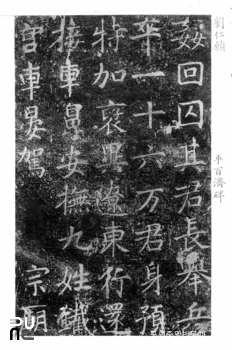 劉仁願
平百濟碑
姦回囚其君長舉兵
卒一十六万君身預
特加襃異遼東行還
接車鼻安撫九姓鐵
宮車晏駕 宗廟